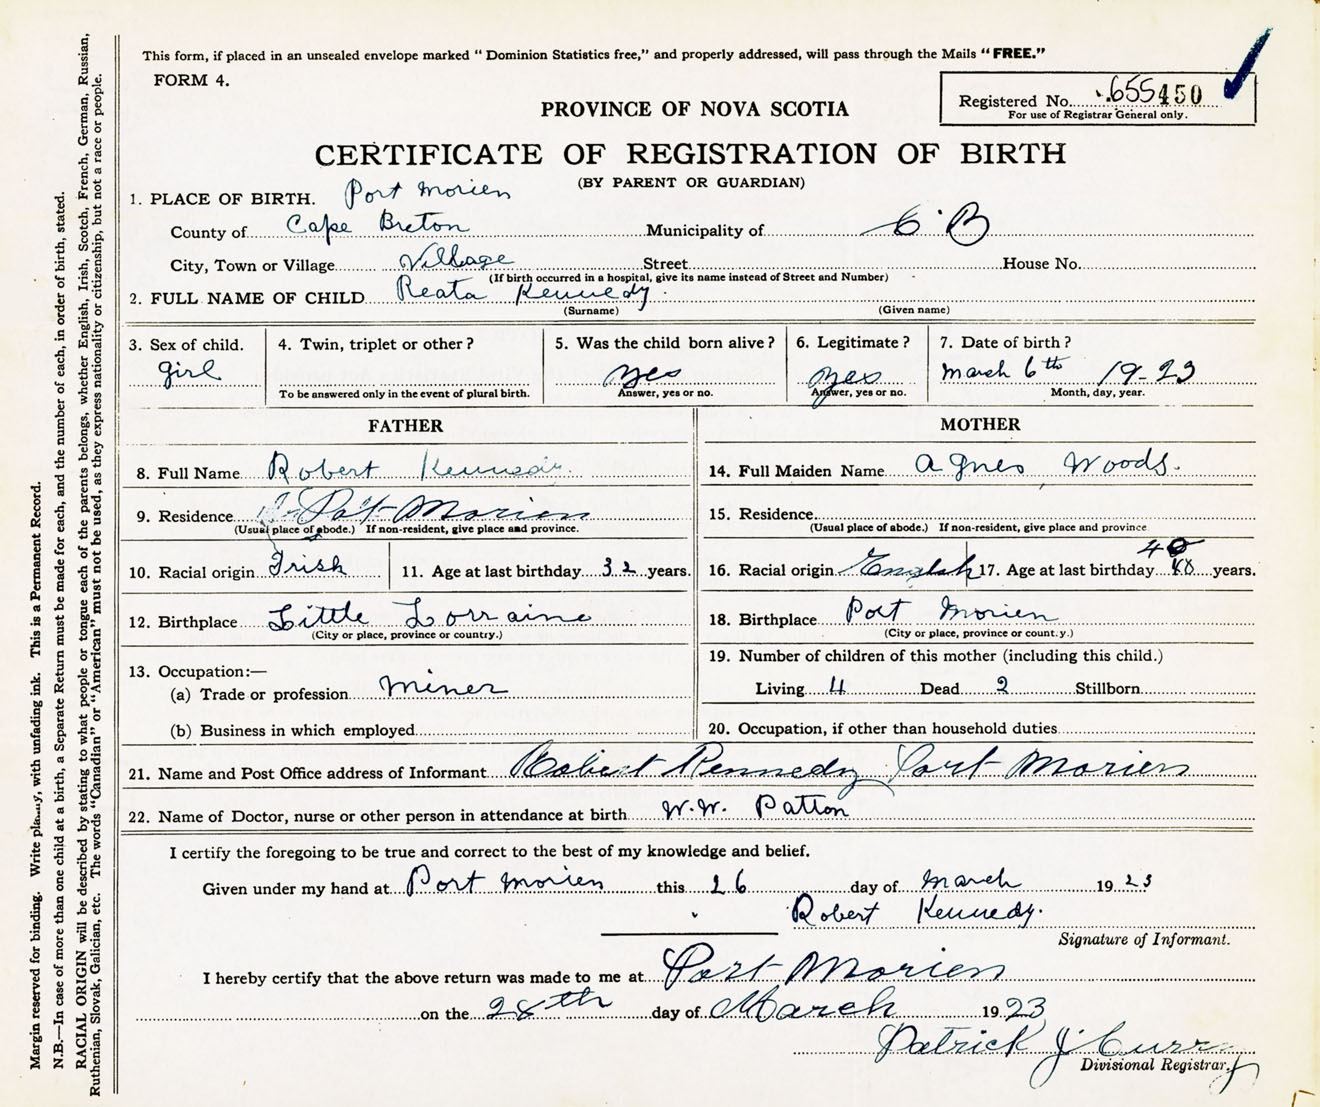 This form, if placed in an unsealed envelope marked "Dominion Statistics free," and properly addressed, will pass through the Mails "FREE."
FORM 4.
Registered No. 655450
For use of Registrar General only.
PROVINCE OF NOVA SCOTIA
CERTIFICATE OF REGISTRATION OF BIRTH
(BY PARENT OR GUARDIAN)
1. PLACE OF BIRTH. Port Morien
County of Cape Breton Municipality of C B
City, Town or Village Village Street House No.
(If birth occurred in a hospital, give its name instead of Street and Number)
2. FULL NAME OF CHILD Reata Kennedy.
(Surname) (Given name)
3. Sex of child. 4. Twin, triplet or other? 5. Was the child born alive? 6. Legitimate? 7. Date of birth?
girl yes yes March 6th 19-23
To be answered only in the event of plural birth. Answer, yes or no. Answer, yes or no. Month, day, year.
FATHER
8. Full Name Robert Kennedy.
9. Residence Port Morien
(Usual place of abode.) If non-resident, give place and province.
10. Racial origin Irish 11. Age at last birthday 32 years.
12. Birthplace Little Lorraine
(City or place, province or country.)
13. Occupation:—
(a) Trade or profession Miner
(b) Business in which employed
MOTHER
14. Full Maiden Name Agnes Woods.
15. Residence
(Usual place of abode.) If non-resident, give place and province
16. Racial origin English 17. Age at last birthday years.
18. Birthplace Port Morien
(City or place, province or count.y.)
19. Number of children of this mother (including this child.)
Living 4 Dead 2 Stillborn
20. Occupation, if other than household duties
21. Name and Post Office address of Informant Robert Kennedy Port Morien
22. Name of Doctor, nurse or other person in attendance at birth W.W. Patton
I certify the foregoing to be true and correct to the best of my knowledge and belief.
Given under my hand at Port Morien this 26 day of March 1923
Robert Kennedy.
Signature of Informant.
I hereby certify that the above return was made to me at Port Morien
on the 28th day of March 1923
Patrick J Curry
Divisional Registrar.
Margin reserved for binding. Write plainly, with unfading ink. This is a Permanent Record.
N.B.—In case of more than one child at a birth, a Separate Return must be made for each, and the number of each, in order of birth, stated.
RACIAL ORIGIN will be described by stating to what people or tongue each of the parents belongs, whether English, Irish, Scotch, French, German, Russian,
Ruthenian, Slovak, Galician, etc. The words "Canadian" or "American" must not be used, as they express nationality or citizenship, but not a race or people.